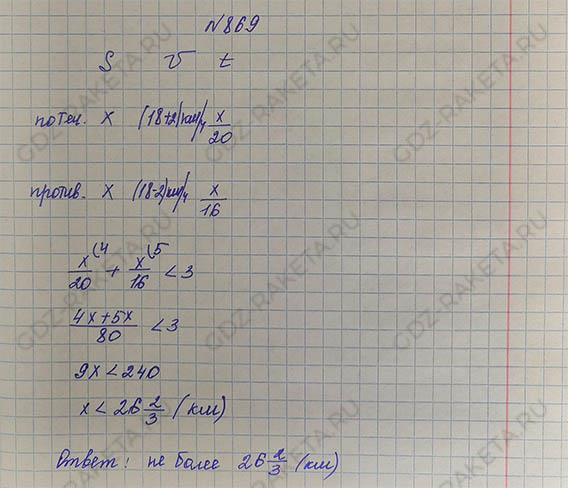 N869
S V t
по теч. x (18+2)км/ч x/20
против. x (18-2)км/ч x/16
x/20 (4 + x/16 (5 < 3
4x+5x/80 < 3
9x < 240
x < 26 2/3 (км)
Ответ: не более 26 2/3 (км)
GDZ-RAKETA.RU
GDZ-RAKETA.RU
GDZ-RAKETA.RU
GDZ-RAKETA.RU
GDZ-RAKETA.RU
GDZ-RAKETA.RU